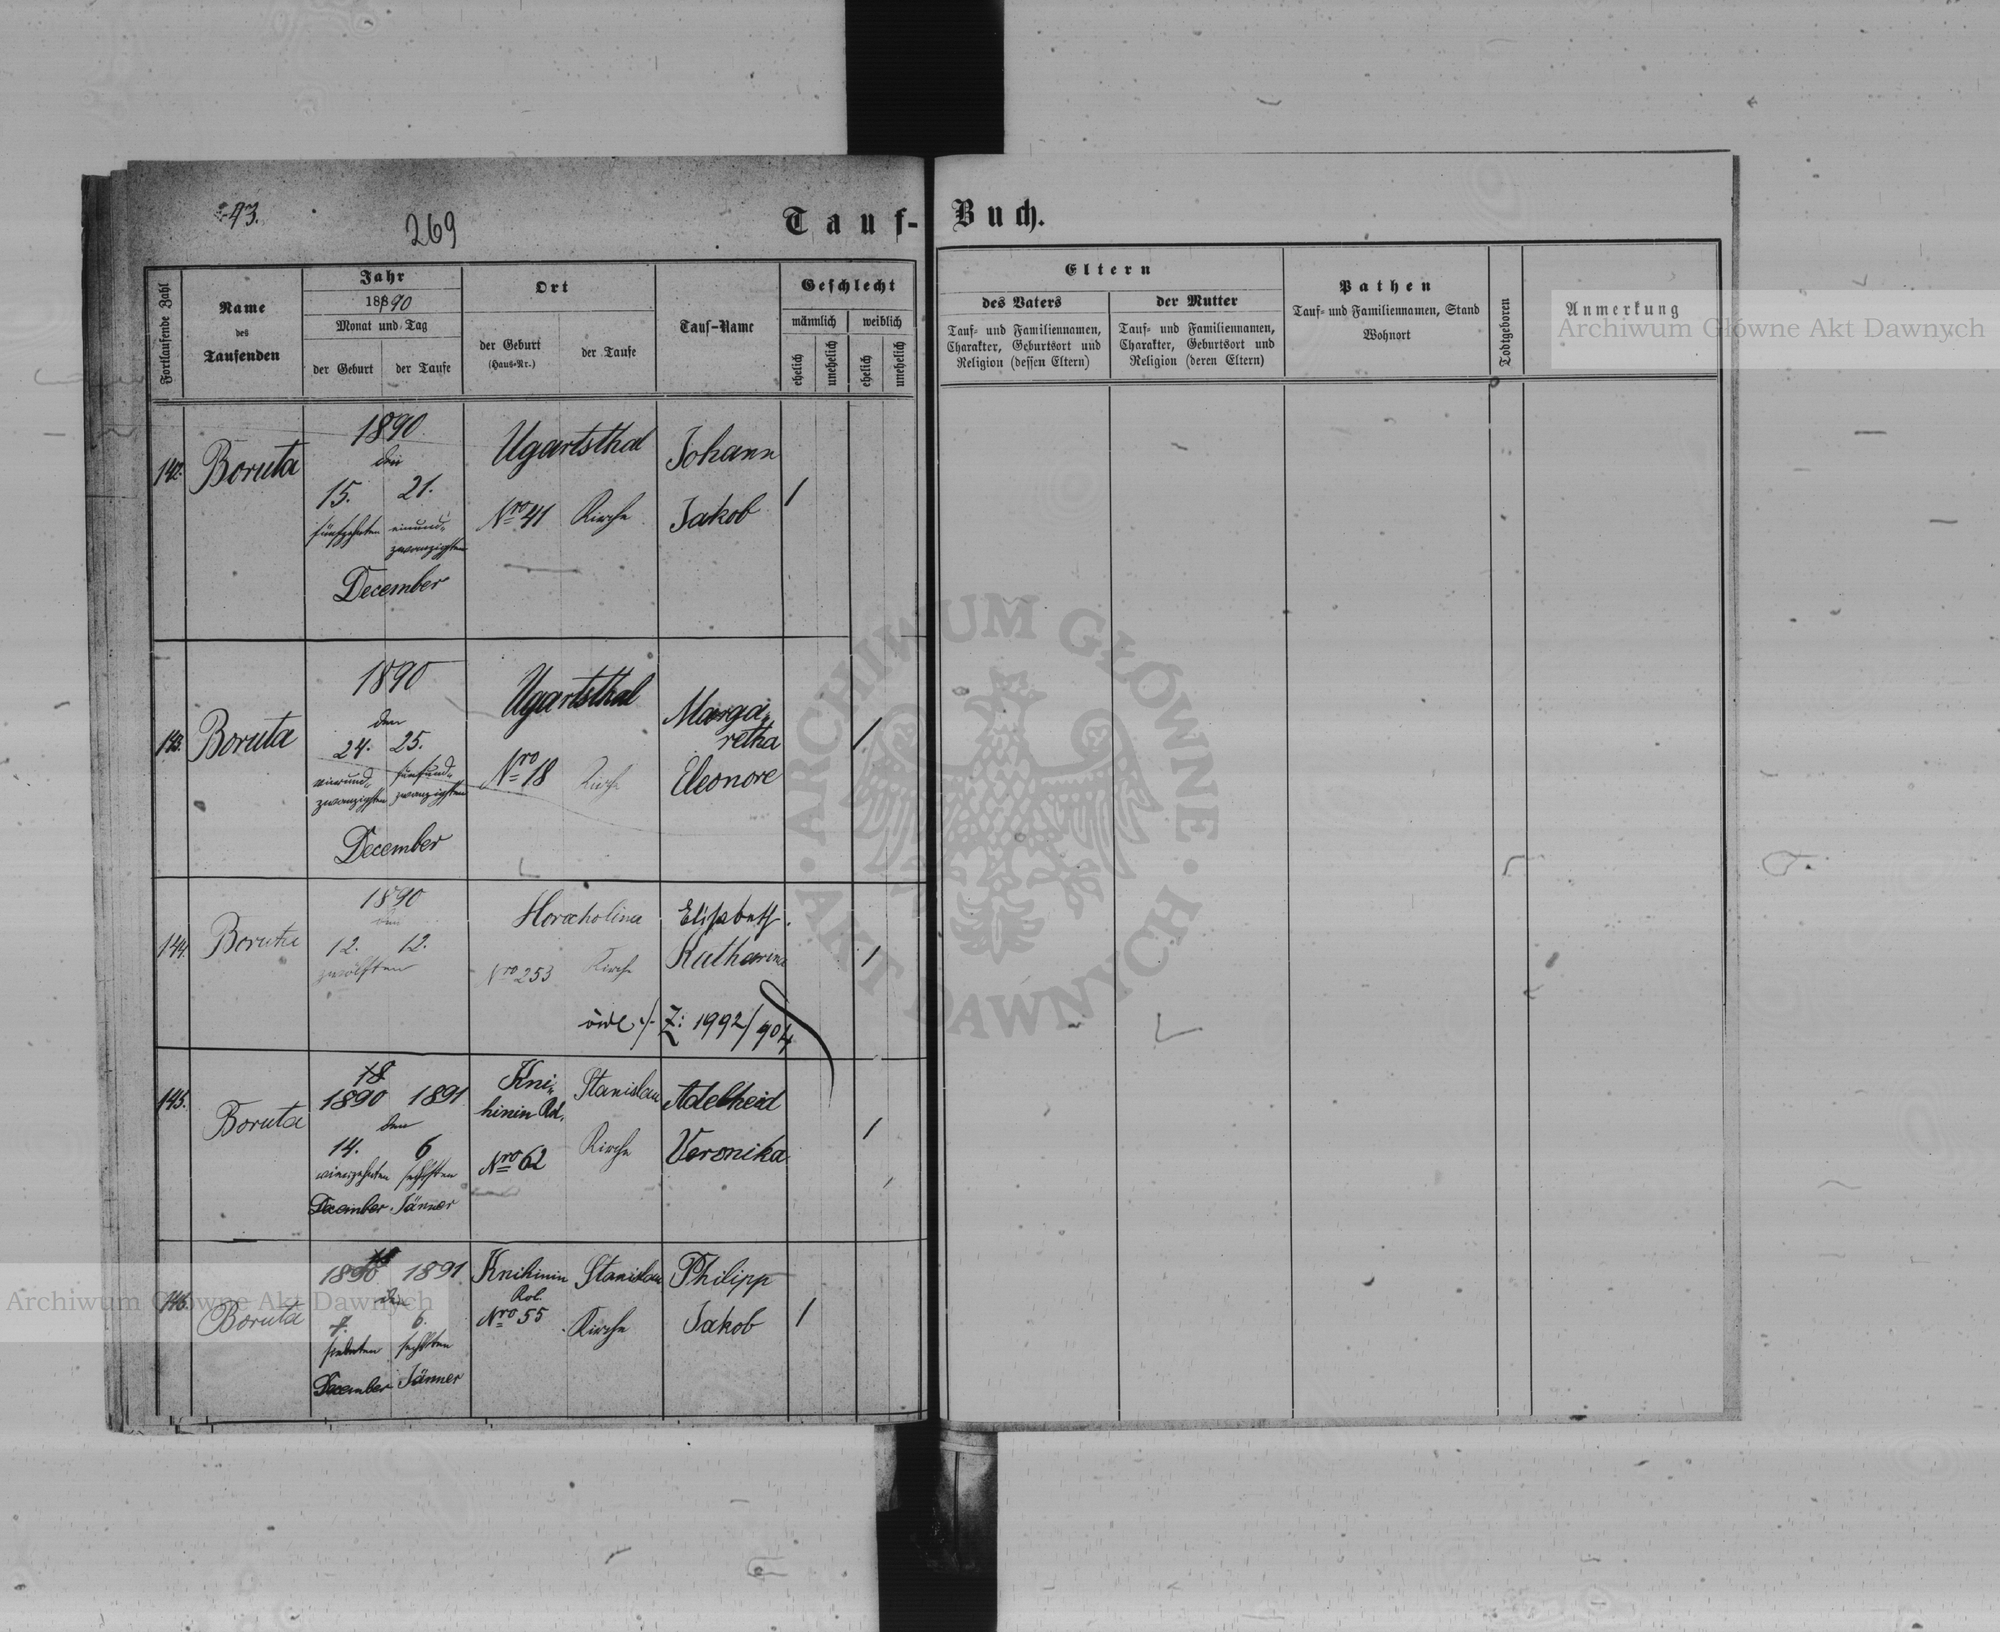 43.
269
Tauf-Buch.
Fortlaufende Zahl
Name
des
Taufenden
Jahr
18890
Monat und Tag
der Geburt
der Taufe
Ort
der Geburt
(Haus-Nr.)
der Taufe
Tauf-Name
Geschlecht
männlich
weiblich
ehelich
unehelich
ehelich
unehelich
Eltern
des Vaters
der Mutter
Tauf- und Familiennamen,
Charakter, Geburtsort und
Religion (dessen Eltern)
Tauf- und Familiennamen,
Charakter, Geburtsort und
Religion (deren Eltern)
Pathen
Tauf- und Familiennamen, Stand
Wohnort
Todtgeboren
Anmerkung
Archiwum Główne Akt Dawnych
142.
Boruta
1890
den
15. 21.
fünfzehnten einund-
zwanzigsten
December
Ugartsthal
Nro 41 Kirche
Johann
Jakob
1
143.
Boruta
1890
den
24. 25.
vierund- fünfund-
zwanzigsten zwanzigsten
December
Ugartsthal
Nro 18 Kirche
Marga-
retha
Eleonore
1
144.
Boruta
1890
den
12. 12.
zwölften
Horocholina
Nro 253 Kirche
Elisabeth
Katharina
1
Z: 1992/904
145.
Boruta
18
1890 1891
den
14. 6
vierzehnten sechsten
December Jänner
Kni-
hinin Kol.
Nro 62
Stanislau
Kirche
Adelheid
Veronika
1
146.
Boruta
1890 1891
den
7. 6.
siebenten sechsten
December Jänner
Knihinin
Kol.
Nro 55
Stanislau
Kirche
Philipp
Jakob
1
ARCHIWUM GŁÓWNE · AKT DAWNYCH ·
Archiwum Główne Akt Dawnych